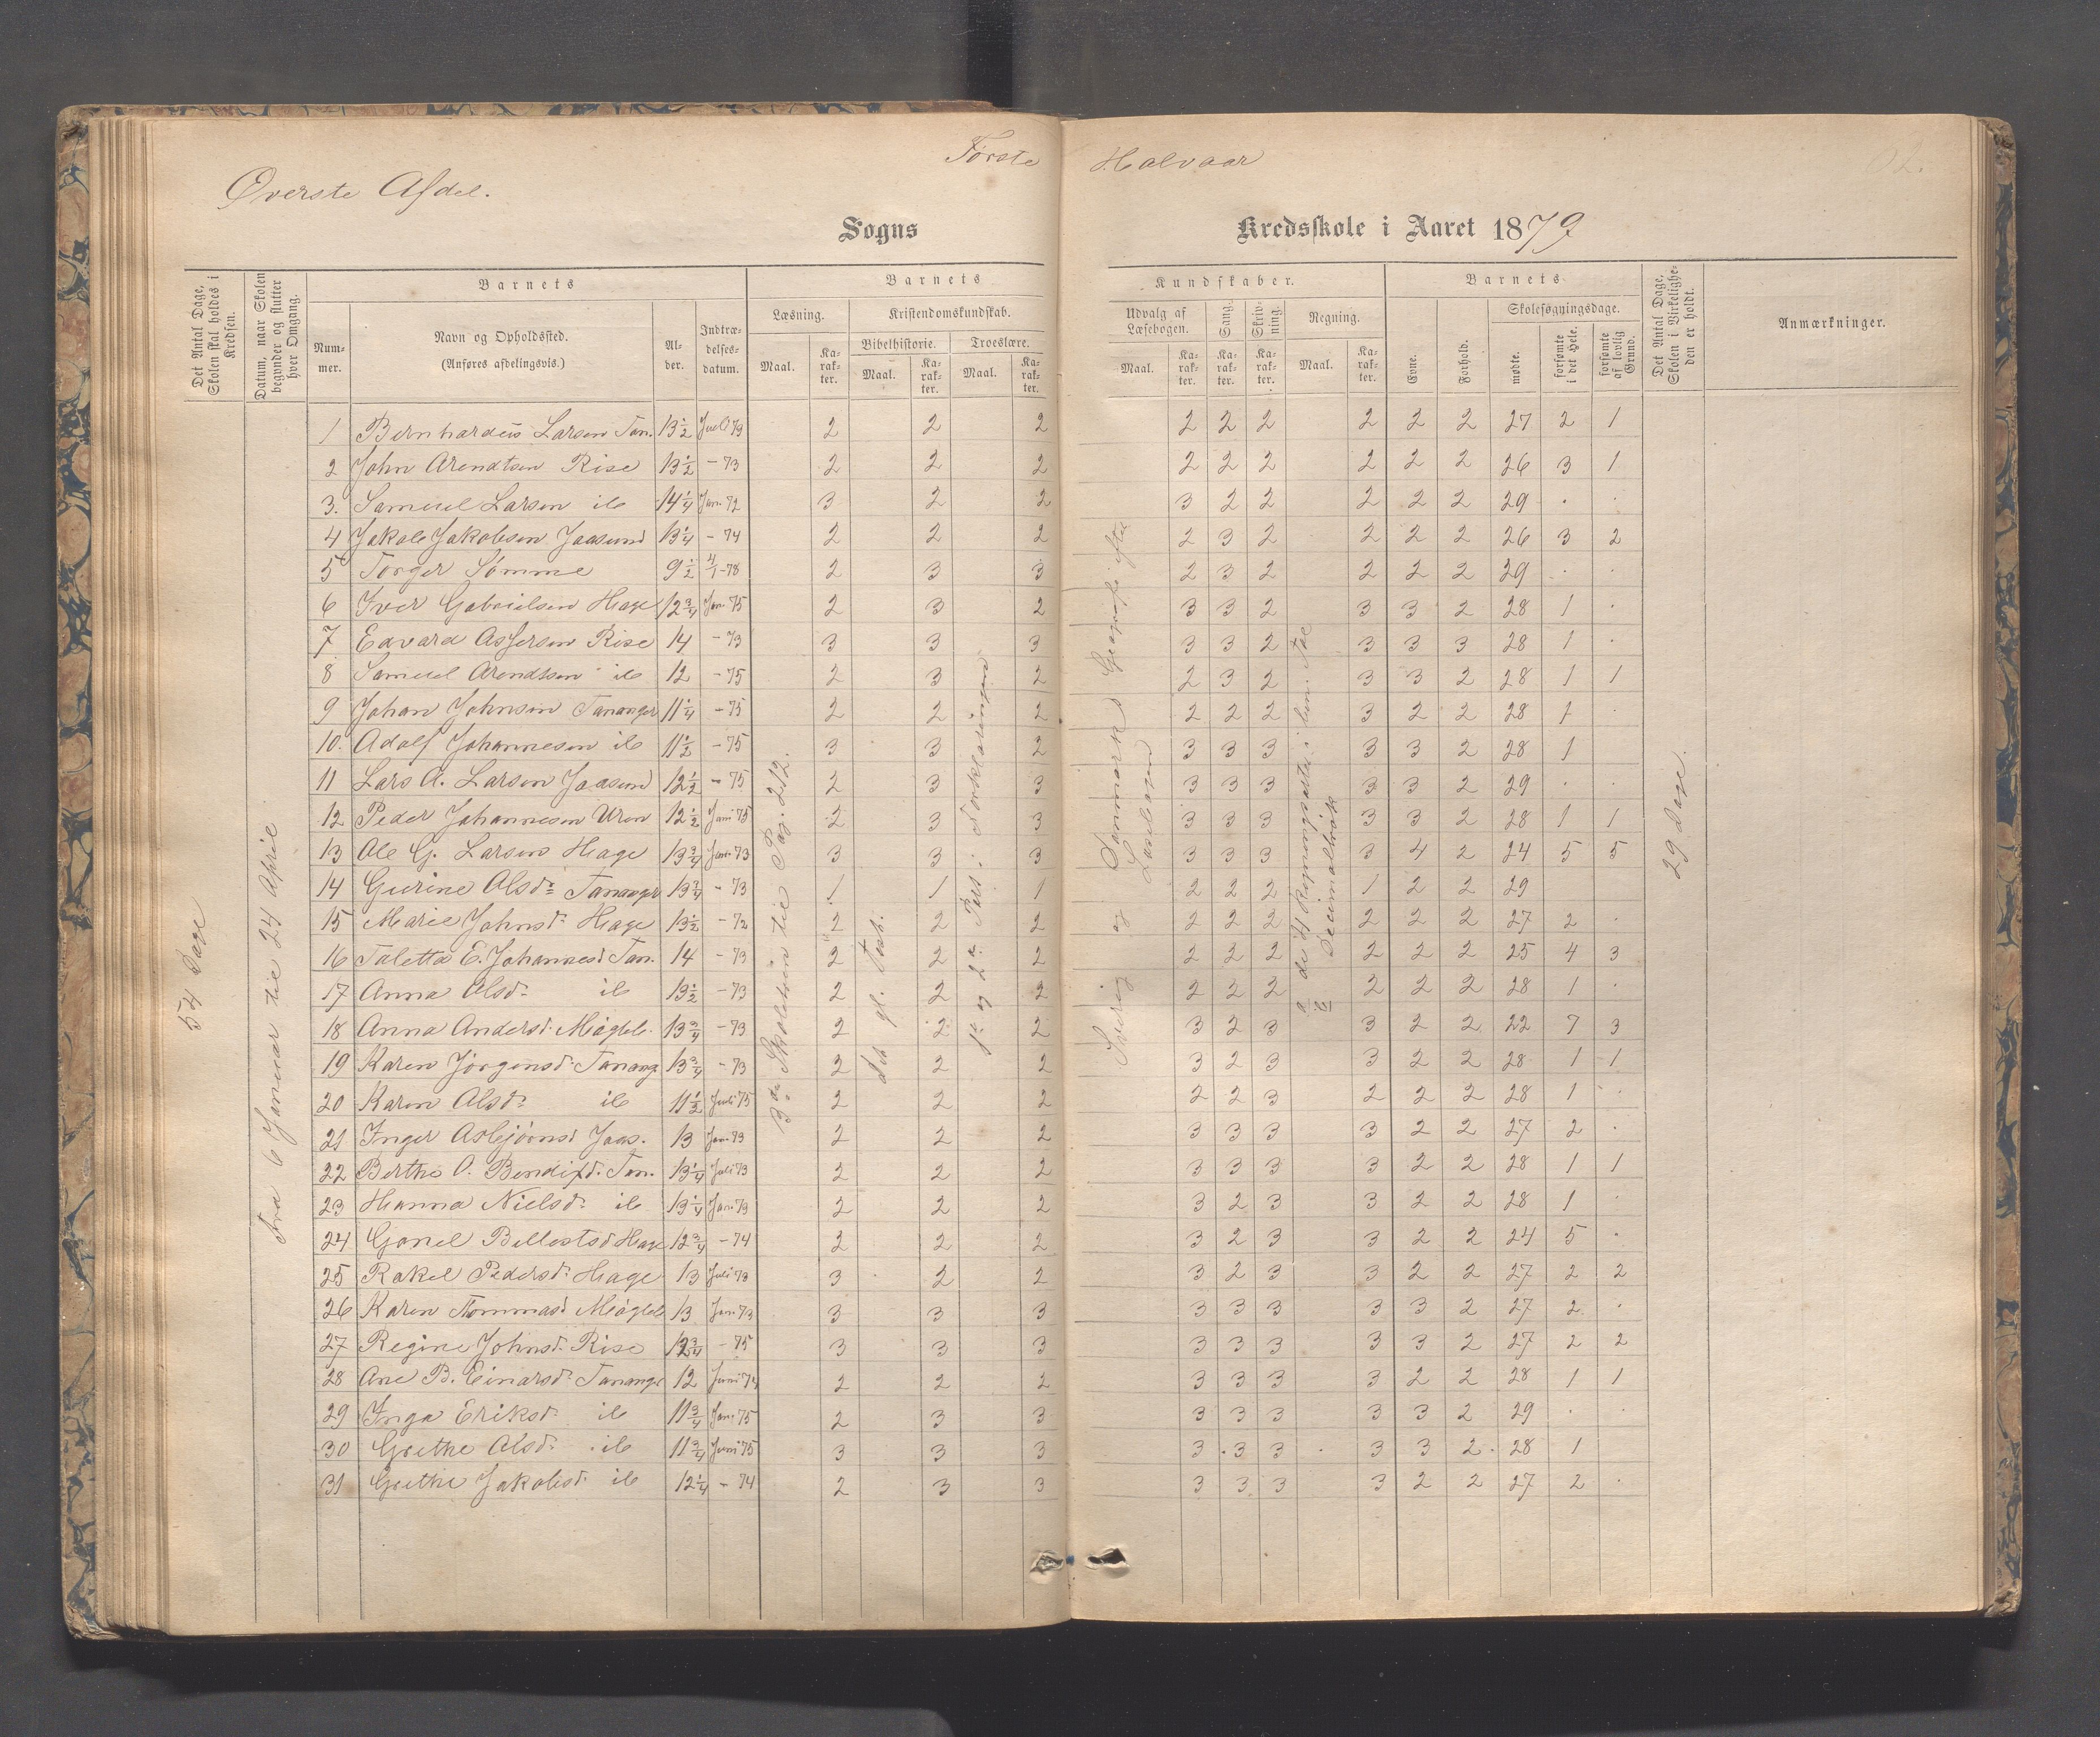 Første Halvaar
Øverste Afdel.
Sogns Kredsskole i Aaret 1879
Det Antal Dage, Skolen skal holdes i Kredsen.
Datum, naar Skolen begynder og slutter hver Omgang.
Barnets
Num-mer.
Navn og Opholdssted. (Anføres afdelingsvis.)
Al-der.
Indtræ-delses-datum.
Barnets
Læsning.
Maal.
Ka-rak-ter.
Kristendomskundskab.
Bibelhistorie.
Maal.
Ka-rak-ter.
Troeslære.
Maal.
Ka-rak-ter.
Kundskaber.
Udvalg af Læsebogen.
Maal.
Ka-rak-ter.
Sang.
Ka-rak-ter.
Skriv-ning.
Ka-rak-ter.
Regning.
Maal.
Ka-rak-ter.
Barnets
Evne.
Forhold.
Skolesøgningsdage.
mødte.
forsømte i det Hele.
forsømte af lovlig Grund.
Det Antal Dage, Skolen i Virkelighe-den er holdt.
Anmærkninger.
54 Dage
Fra 6 Januar til 24 April
3die Skoletrin til Pag. 212.
det gl. Test.
1ste og 2den Part i Forklaringen
Sverig og Danmarks Geografi efter Læsebogen
de 4 Regningsarter i Tal
Decimalbrøk
29 Dage.
1 Bernhardus Larsen Tan. 13 1/2 Juli 73 2 2 2 2 2 2 2 2 2 27 2 1
2 John Arendtsen Rise 13 1/2 - 73 2 2 2 2 2 2 2 2 2 26 3 1
3. Samuel Larsen ib 14 1/4 Jan. 72 3 2 2 3 2 2 2 2 2 29 . .
4 Jakob Jakobsen Jaasund 13 1/4 - 74 2 2 2 2 3 2 2 2 2 26 3 2
5 Torger Sømme 9 1/2 4/1 - 78 2 3 3 2 3 2 2 2 2 29 . .
6 Iver Gabrielsen Hage 12 3/4 Jan. 75 2 3 2 3 3 2 3 3 2 28 1 .
7 Edvard Assersen Rise 14 - 73 3 3 3 3 3 2 3 3 3 28 1 .
8 Samuel Arendtsen ib 12 - 75 2 3 2 2 3 2 3 3 2 28 1 1
9 Johan Johnsen Tananger 11 1/4 - 75 2 2 2 2 2 2 3 2 2 28 1 .
10. Adolf Johannesen ib 11 1/2 - 75 3 3 2 3 3 3 3 3 2 28 1
11 Lars A. Larsen Jaasund 12 1/2 - 75 2 3 3 3 3 3 3 3 2 29 . .
12 Peder Johannesen Uren 12 1/2 Juni 75 2 3 3 3 3 3 3 3 2 28 1 1
13 Ole G. Larsen Hage 13 3/4 Jan. 73 3 3 3 3 3 3 3 4 2 24 5 5
14 Gurine Olsd: Tananger 13 3/4 - 73 1 1 1 2 2 2 1 2 2 29
15 Marie Johnsd: Hage 13 1/2 - 72 2 2 2 2 2 2 2 2 2 27 2 .
16 Taletta E. Johannesd Tan. 14 - 73 2 2 2 2 2 2 2 2 2 25 4 3
17 Anna Olsd: ib 13 1/2 - 73 2 2 2 2 2 2 2 2 2 28 1 .
18 Anna Andersd. Miøgleb. 13 3/4 - 73 2 2 2 3 2 3 3 2 2 22 7 3
19 Karen Jørgensd: Tanang. 13 3/4 - 73 2 2 2 3 2 3 3 2 2 28 1 1
20 Karen Olsd: ib 11 1/2 Juli 75 2 2 2 2 2 3 2 2 2 28 1 .
21 Inger Asbjørnsd Jaas. 13 Jan. 73 2 2 2 3 3 3 3 2 2 27 2 .
22 Berthe O. Bendixd. Tan. 13 1/4 Juli 73 2 2 2 3 3 3 3 2 2 28 1 1
23 Hanna Nielsd: ib 13 1/4 Jan 73 2 2 2 3 2 3 3 2 2 28 1 .
24 Gonel Bellestsd Hage 12 3/4 - 74 2 2 2 3 2 3 3 2 2 24 5 .
25 Rakel Pedersd: Hage 13 Juli 73 3 2 2 3 2 3 3 2 2 27 2 2
26 Karen Tommasd Miøgleb 13 Jan. 73 3 3 3 3 3 3 3 3 2 27 2 .
27 Regine Johnsd. Rise 12 3/4 - 75 3 3 3 3 3 3 3 3 2 27 2 2
28 Ane B. Einarsd: Tananger 12 Juni 74 2 2 2 3 3 3 3 2 2 28 1 1
29 Inga Eriksd: ib 11 3/4 Jan. 75 2 3 3 3 3 3 3 3 2 29 . .
30 Grethe Olsd: ib 11 3/4 Juni 75 3 3 3 3 3 3 3 3 2 28 1
31 Grethe Jakobsd: ib 12 1/4 - 74 2 3 3 3 3 3 3 2 2 27 2 .